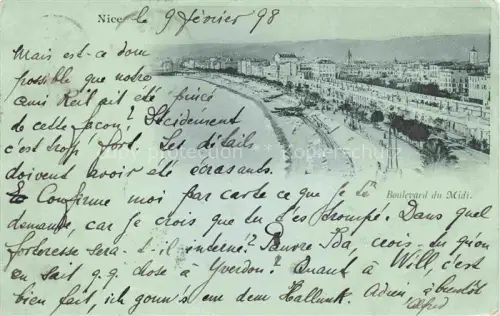 Nice, le 9 février 98
Mais est-ce donc
possible que notre
ami Keil ait été pincé
de cette façon? Décidement
c'est trop fort. Les détails
doivent avoir été écrasants.
Confirme moi par carte ce que je te
demande, car je crois que tu t'es trompé. Dans quel
Boulevard du Midi.
forteresse sera-t-il interné? Pauvre Ida, crois-tu qu'on
en sait q.q. chose à Yverdon? Quant à Will, c'est
bien fait, ich gönn's em dem. Adieu, à bientôt
Alfred